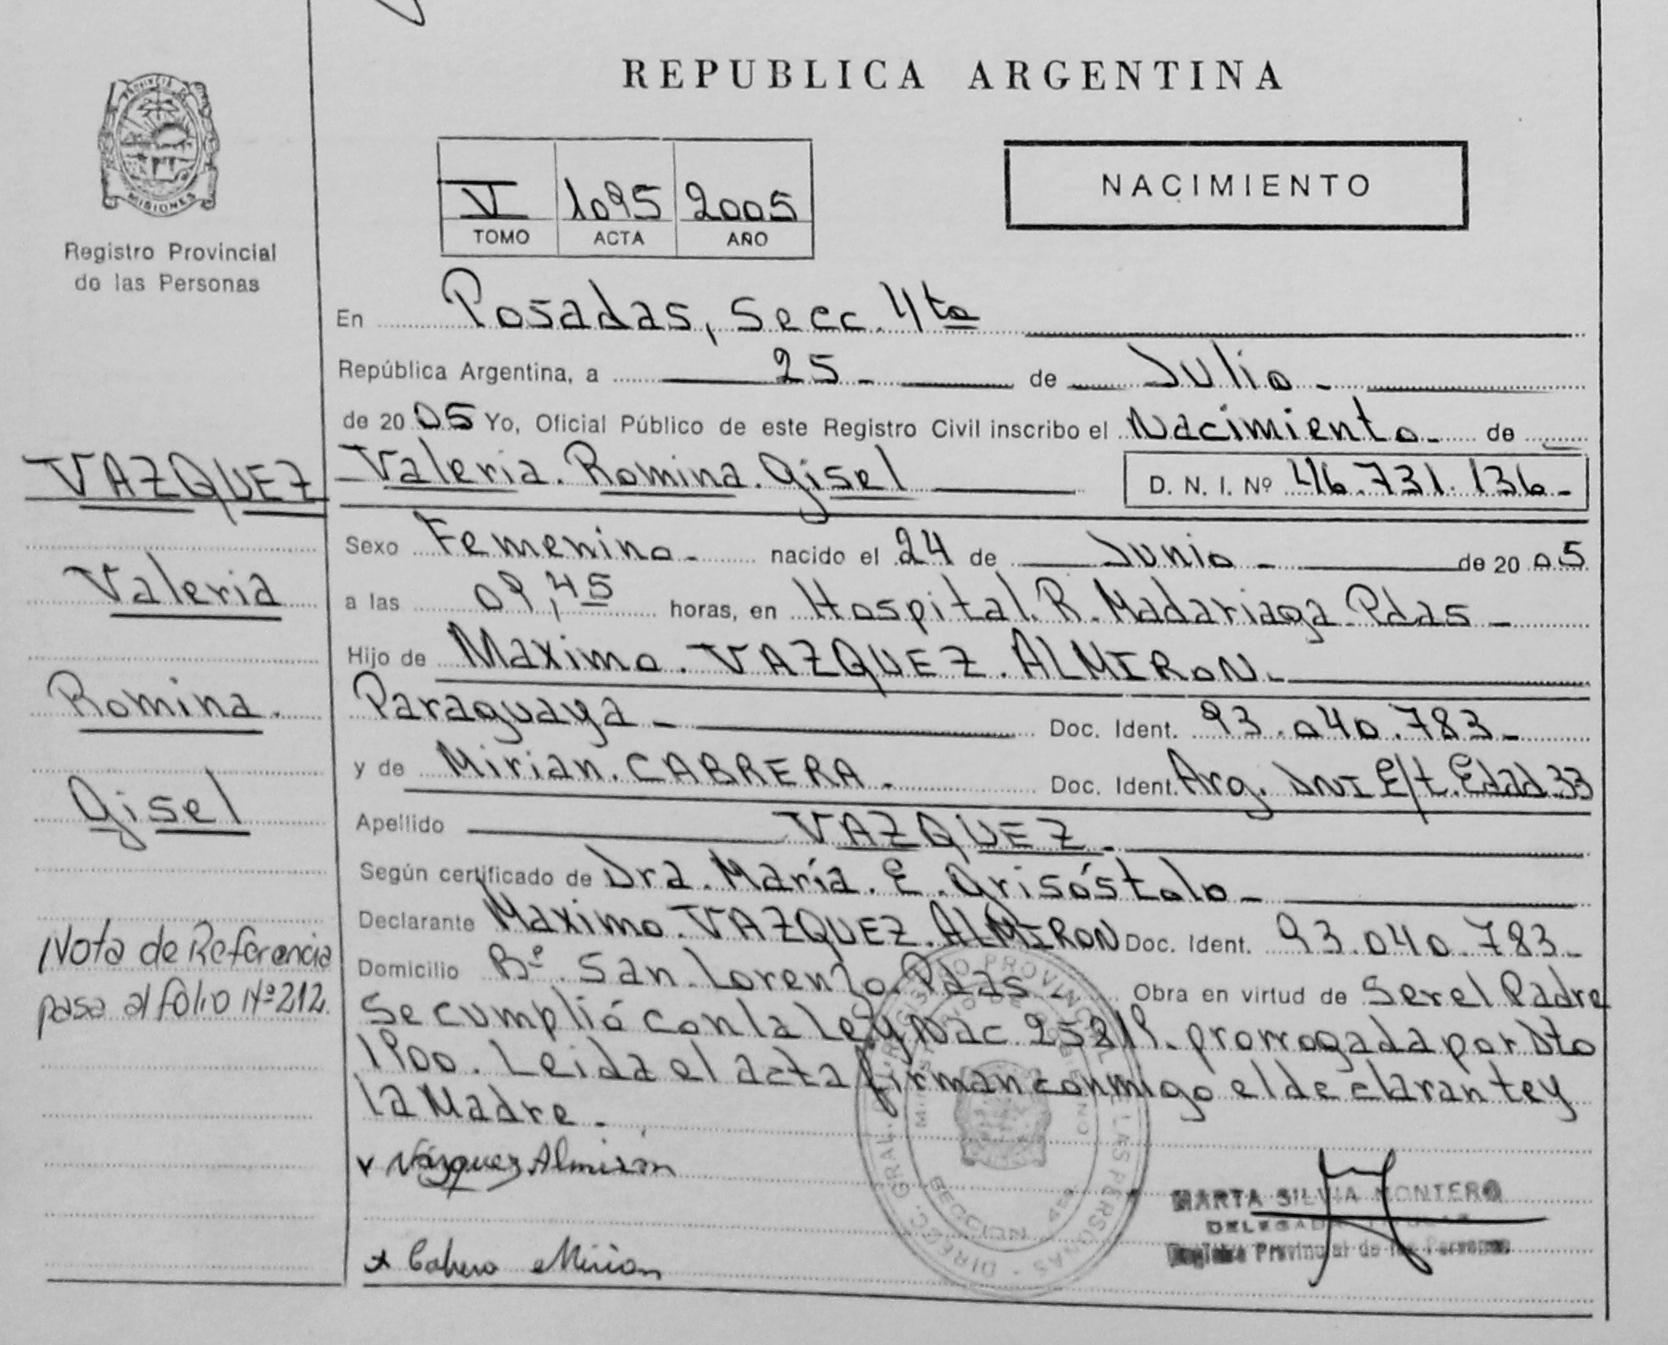 REPUBLICA ARGENTINA
PROVINCIA DE
MISIONES
Registro Provincial
de las Personas
V 1095 2005
TOMO ACTA AÑO
NACIMIENTO
En Posadas, Secc. 4ta
República Argentina, a 25 - de Julio -
de 2005 Yo, Oficial Público de este Registro Civil inscribo el Nacimiento - de
Valeria. Romina. Gisel D. N. I. Nº 46.731.136-
Sexo Femenino - nacido el 24 de Junio - de 2005
a las 09,45 horas, en Hospital. R. Madariaga. Pdas -
Hijo de Maximo. VAZQUEZ. ALMIRON. -
Paraguaya - Doc. Ident. 93.040.783-
y de Mirian. CABRERA. Doc. Ident. Arg. DNI E/t. Edad 33
Apellido VAZQUEZ. -
Según certificado de Dra. María. E. Grisóstolo -
Declarante Maximo. VAZQUEZ. ALMIRON Doc. Ident. 93.040.783-
Domicilio Bº. San Lorenzo. Pdas - Obra en virtud de Ser el Padre
Se cumplió con la Ley Nac. 25819. prorrogada por Dto
1900. Leida el acta firman conmigo el declarante y
la Madre. -
VAZQUEZ
Valeria
Romina.
Gisel
Nota de Referencia
pasa al folio Nº 212.
Vázquez Almirón
Cabrera Mirian
MARTA SILVIA MONTERO
DELEGADA TITULAR
Registro Provincial de las Personas
DIRECC. GRAL. DEL REGISTRO PROVINCIAL DE LAS PERSONAS
MINISTERIO DE GOBIERNO
SECCION 4ta